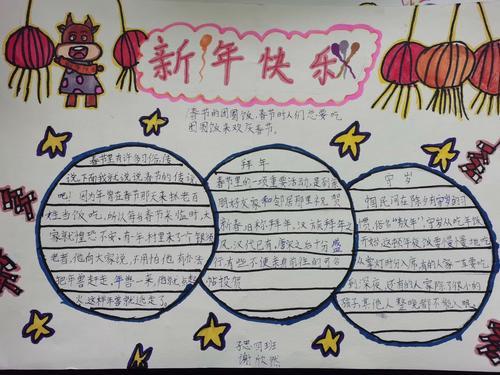 新年快乐
春节的团圆饭,春节时人们总要吃
团圆饭来欢庆春节。
春节里有许多习俗,传
说下面我就说说春节的传说
吧!因为年兽在春节那天来抓老百
姓当饭吃,所以每当春节来临时,大
家就惶恐不安,有一年村里来了个银发
老者,他向大家说,不用怕,他有办法
把年兽赶走,年兽一来,他就放起
火,这样年兽就逃走了。
拜年
春节里的一项重要活动,是到亲
朋好友家和邻居那里祝贺
新春,旧称拜年,汉族拜年之
风,汉代已有,唐宋之后十分盛
行,有些不便亲身前往的可
帖投贺
守岁
中国民间在除夕有守岁的习
惯,俗名"熬年",守岁从吃年夜
开始,这顿年夜饭要慢慢地吃
从掌灯时分入席,有的人家一直要吃
到深夜,还有的人家除了很小的
孩子,其他人整晚都不能入眠
四班
谢欣然